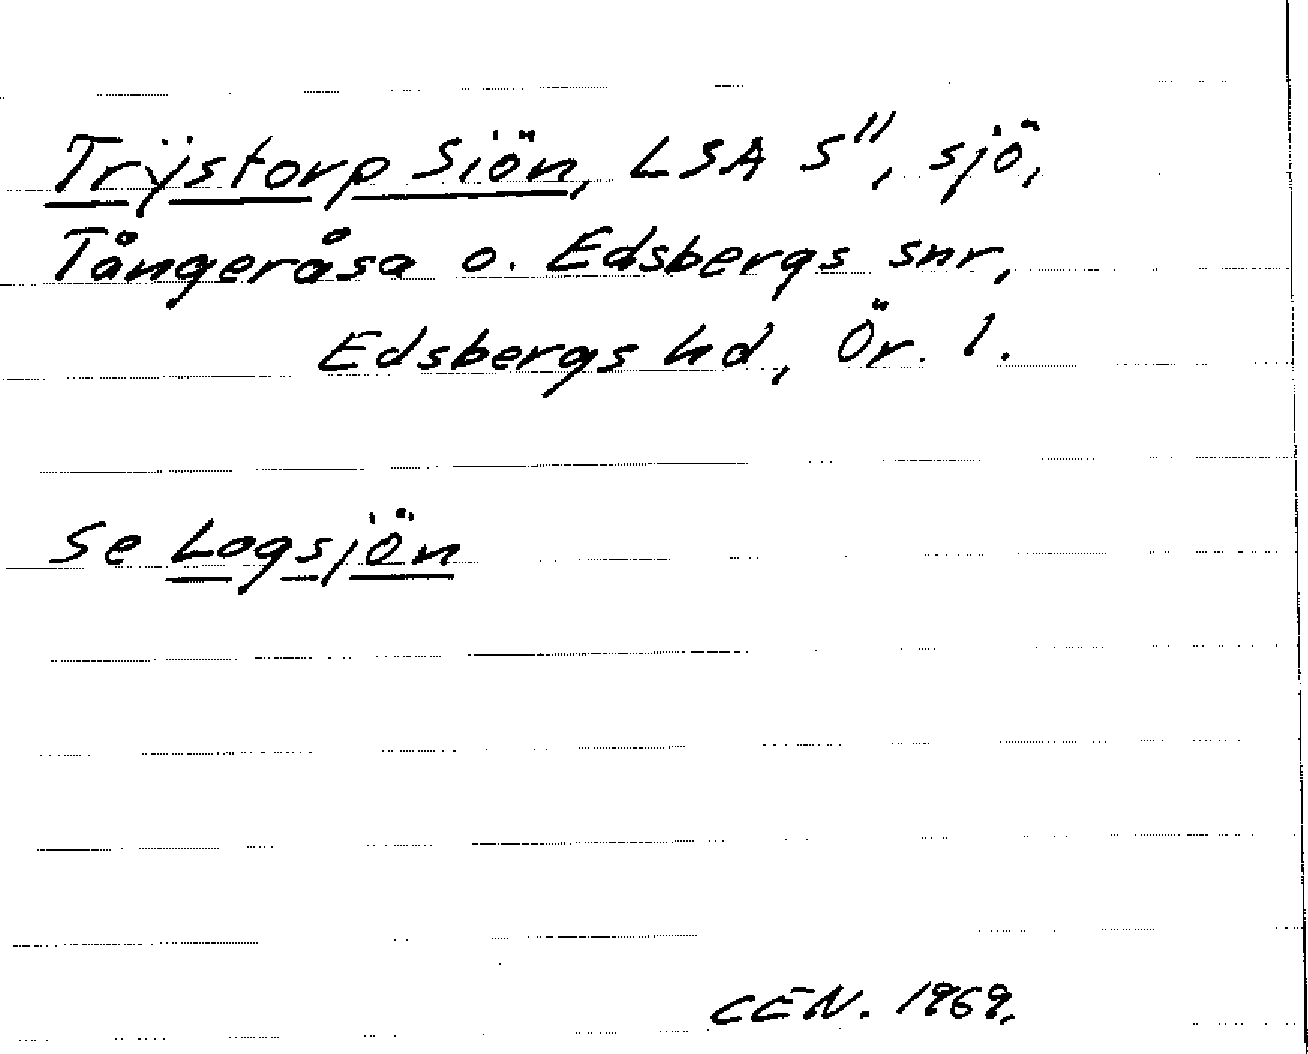 Trÿstorp Siön, LSA S", sjö,
Tångeråsa o. Edsbergs snr,
Edsbergs hd, Ör. l.
Se Logsjön
CEN. 1969.